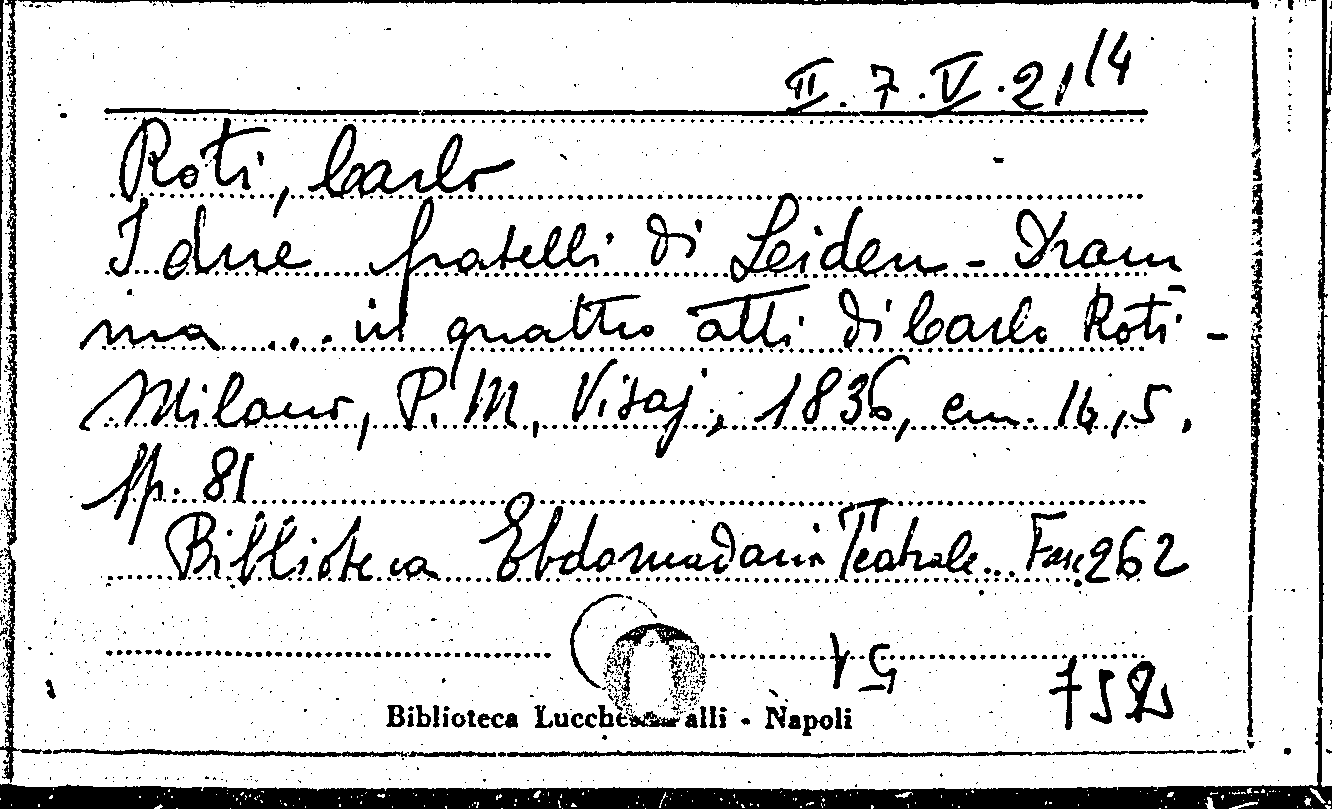 II. 7. V. 21/4
Roti, Carlo
I due fratelli di Leiden - Dram
ma ... in quattro atti di Carlo Roti -
Milano, P. M. Visaj, 1836, cm. 14,5,
pp. 81
Biblioteca Ebdomadaria Teatrale. Fasc. 262
Biblioteca Lucchesi alli - Napoli